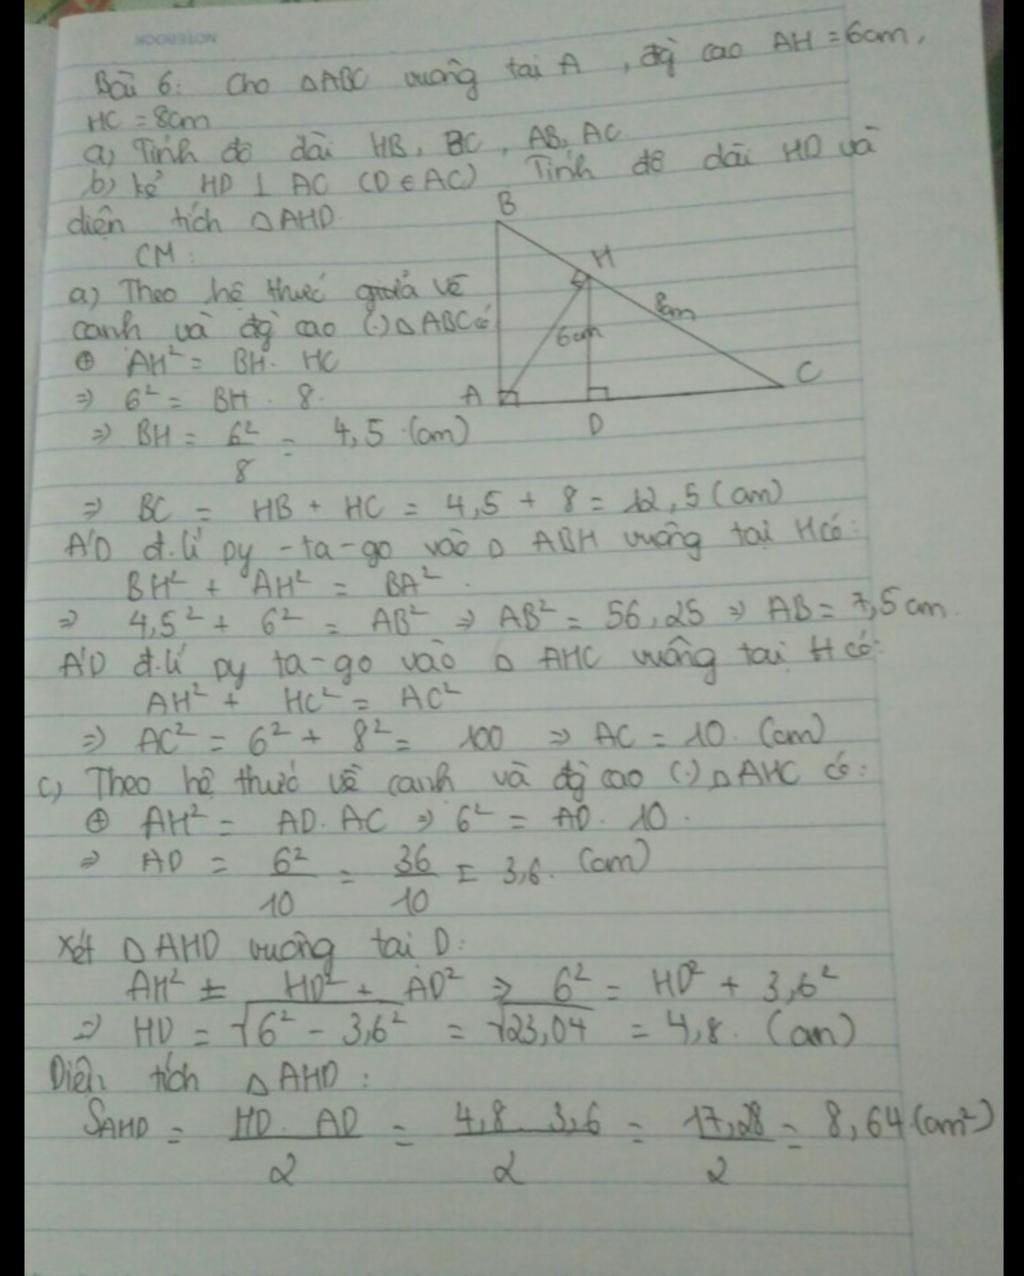 NOTEBOOK
Bài 6: Cho △ABC vuông tại A, đg cao AH = 6cm,
HC = 8cm
a) Tính độ dài HB, BC, AB, AC
b) kẻ HD ⊥ AC (D ∈ AC) Tính độ dài HD và
diện tích △AHD
CM:
a) Theo hệ thức giữa về
cạnh và đg cao (·) △ABC có
⊕ AH² = BH. HC
⇒ 6² = BH . 8.
⇒ BH = 6²/8 = 4,5 (cm)
B
H
8cm
6cm
A
D
C
⇒ BC = HB + HC = 4,5 + 8 = 12,5 (cm)
A'D đ.lí py-ta-go vào △ ABH vuông tại H có:
BH² + AH² = BA².
⇒ 4,5² + 6² = AB² ⇒ AB² = 56,25 ⇒ AB = 7,5 cm.
A'D đ.lí py ta-go vào △ AHC vuông tại H có:
AH² + HC² = AC²
⇒ AC² = 6² + 8² = 100 ⇒ AC = 10. (cm)
c) Theo hệ thức về cạnh và đg cao (·) △AHC có:
⊕ AH² = AD. AC ⇒ 6² = AD. 10.
⇒ AD = 6²/10 = 36/10 = 3,6. (cm)
Xét △AHD vuông tại D:
AH² = HD² + AD² ⇒ 6² = HD² + 3,6²
⇒ HD = √6² - 3,6² = √23,04 = 4,8. (cm)
Diện tích △AHD:
SAHD = HD. AD/2 = 4,8. 3,6/2 = 17,28/2 = 8,64 (cm²)